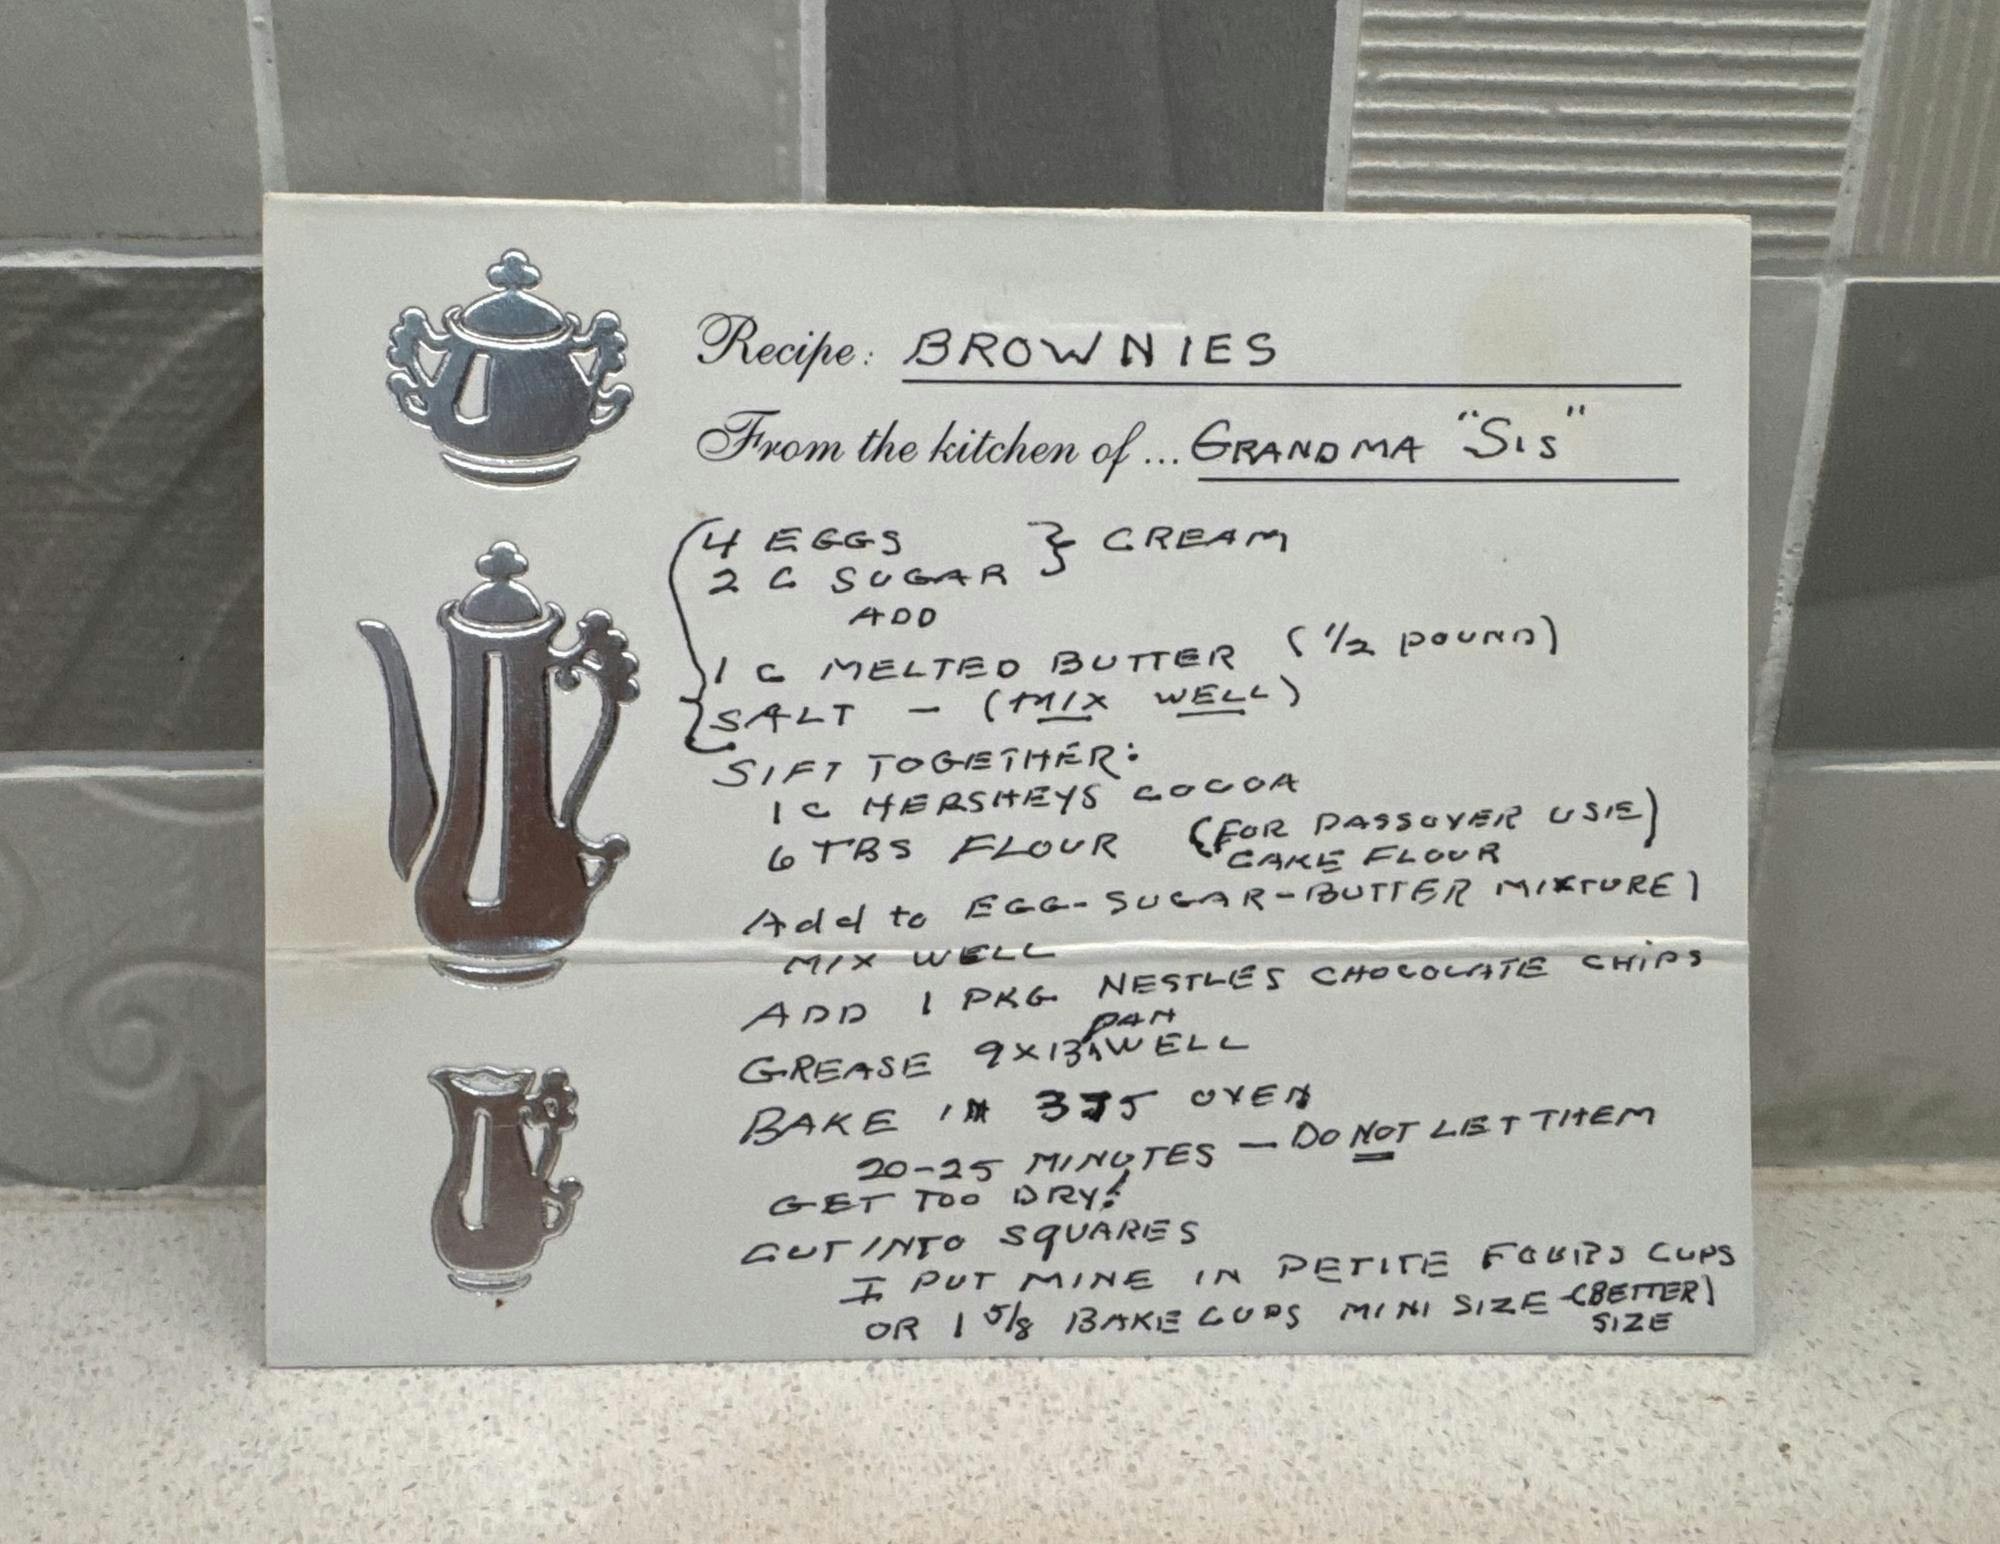 Recipe: BROWNIES
From the kitchen of ... GRANDMA "SIS"
4 EGGS } CREAM
2 C SUGAR
ADD
1 C MELTED BUTTER (1/2 POUND)
SALT - (MIX WELL)
SIFT TOGETHER:
1 C HERSHEYS COCOA
6 TBS FLOUR (FOR PASSOVER USE)
CAKE FLOUR
Add to EGG-SUGAR-BUTTER MIXTURE)
MIX WELL
ADD 1 PKG NESTLES CHOCOLATE CHIPS
GREASE 9X13 PAN WELL
BAKE IN 375 OVEN
20-25 MINUTES - DO NOT LET THEM
GET TOO DRY!
CUT INTO SQUARES
I PUT MINE IN PETITE FOURS CUPS
OR 1 5/8 BAKE CUPS MINI SIZE - (BETTER)
SIZE